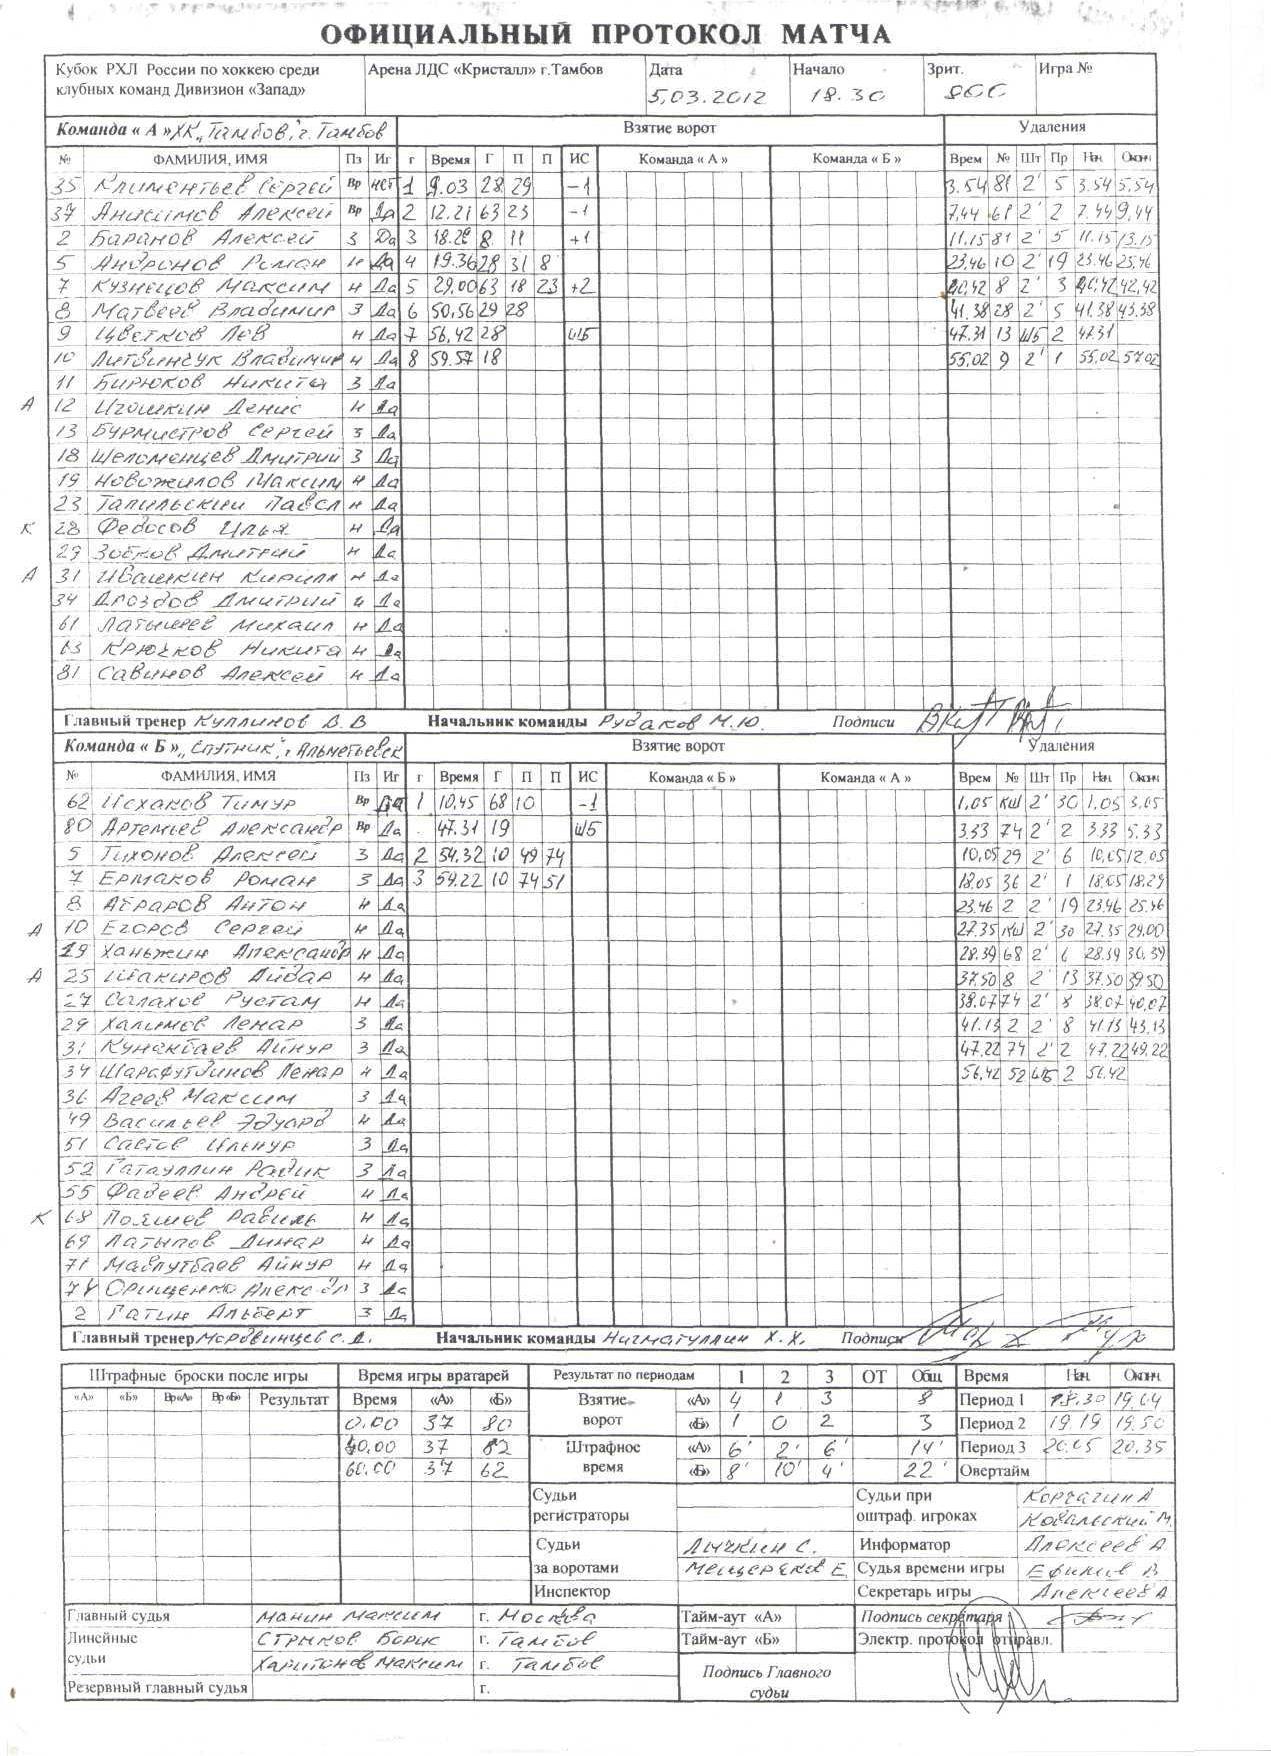 ОФИЦИАЛЬНЫЙ ПРОТОКОЛ МАТЧА
Кубок РХЛ России по хоккею среди клубных команд Дивизион «Запад» Арена ЛДС «Кристалл» г.Тамбов Дата 5.03.2012 Начало 18.30 Зрит. 800 Игра №
Команда « А » ХК „Тамбов", г. Тамбов Взятие ворот Удаления
№ ФАМИЛИЯ, ИМЯ Пз Иг г Время Г П П ИС Команда « А » Команда « Б » Врем № Шт Пр Нач Оконч
35 Климентьев Сергей Вр нет 1 9.03 28 29 -1 3.54 81 2' 5 3.54 5.54
37 Анисимов Алексей Вр Да 2 12.21 63 23 -1 7,44 61 2' 2 7.44 9,44
2 Баранов Алексей З Да 3 18.28 8 11 +1 11.15 81 2' 5 11.15 13.15
5 Андронов Роман Н Да 4 19.36 28 31 8 23.46 10 2' 19 23.46 25.46
7 Кузнецов Максим Н Да 5 29.00 63 18 23 +2 40,42 8 2' 3 40,42 42,42
8 Матвеев Владимир З Да 6 50,56 29 28 41.38 28 2' 5 41.38 43.38
9 Цветков Лев Н Да 7 56,42 28 ШБ 47.31 13 ШБ 2 47.31
10 Литвинчук Владимир Н Да 8 59.57 18 55,02 9 2' 1 55,02 57.02
11 Бирюков Никита З Да
А 12 Игошкин Денис Н Да
13 Бурмистров Сергей З Да
18 Шеломенцев Дмитрий З Да
19 Новожилов Максим Н Да
23 Тапильский Павел Н Да
К 28 Федосов Илья Н Да
29 Зобков Дмитрий Н Да
А 31 Ивашкин Кирилл Н Да
34 Дроздов Дмитрий Н Да
61 Латышев Михаил Н Да
63 Крючков Никита Н Да
81 Савинов Алексей Н Да
Главный тренер Куллинов В.В Начальник команды Рудаков М.Ю. Подписи
Команда « Б » „Спутник", г. Альметьевск Взятие ворот Удаления
№ ФАМИЛИЯ, ИМЯ Пз Иг г Время Г П П ИС Команда « Б » Команда « А » Врем № Шт Пр Нач Оконч
62 Исхаков Тимур Вр Да 1 10,45 68 10 -1 1,05 КШ 2' 30 1,05 3,05
80 Артемьев Александр Вр Да 47.31 19 ШБ 3.33 74 2' 2 3.33 5.33
5 Тихонов Алексей З Да 2 54,32 10 49 74 10,05 29 2' 6 10,05 12.05
7 Ермаков Роман З Да 3 59.22 10 74 51 18.05 36 2' 1 18.05 18.29
8 Аграров Антон Н Да 23.46 2 2' 19 23.46 25.46
А 10 Егоров Сергей Н Да 27.35 КШ 2' 30 27.35 29.00
19 Ханьжин Александр Н Да 28.39 68 2' 6 28.39 30.39
А 25 Шакиров Айдар Н Да 37.50 8 2' 13 37.50 39.50
27 Салахов Рустам Н Да 38.07 74 2' 8 38.07 40,07
29 Халимов Ленар З Да 41.13 2 2' 8 41.13 43,13
31 Кунакбаев Айнур З Да 47,22 74 2' 2 47.22 49,22
34 Шарафутдинов Ленар Н Да 56,42 52 ШБ 2 56.42
36 Агеев Максим З Да
49 Васильев Эдуард Н Да
51 Саетов Ильнур З Да
52 Гатауллин Радик З Да
55 Фадеев Андрей Н Да
К 68 Равиль Н Да
69 Латыпов Динар Н Да
71 Мавлутбаев Айнур Н Да
74 Орищенко Алекс-др З Да
2 Гатин Альберт З Да
Главный тренер Мордвинцев С.А. Начальник команды Нигматуллин Х.Х. Подписи
Штрафные броски после игры Время игры вратарей Результат по периодам 1 2 3 ОТ Общ Время Нач Оконч
«А» «Б» Вр«А» Вр«Б» Результат Время «А» «Б» Взятие ворот «А» 4 1 3 8 Период 1 18.30 19.04
0.00 37 80 «Б» 1 0 2 3 Период 2 19.19 19.50
40.00 37 62 Штрафное время «А» 6' 2' 6' 14' Период 3 20.05 20.35
60.00 37 62 «Б» 8' 10' 4' 22' Овертайм
Судьи регистраторы Судьи при оштраф. игроках Корчагин А Ковальский М.
Судьи за воротами Лычкин С. Информатор Алексеев А.
Мещеряков Е. Судья времени игры Ефимов В
Инспектор Секретарь игры Алексеев А
Главный судья Манин Максим г. Москва Тайм-аут «А» Подпись секретаря
Линейные судьи Стрыков Борис г. Тамбов Тайм-аут «Б» Электр. протокол отправл.
Харитонов Максим г. Тамбов Подпись Главного судьи
Резервный главный судья г.